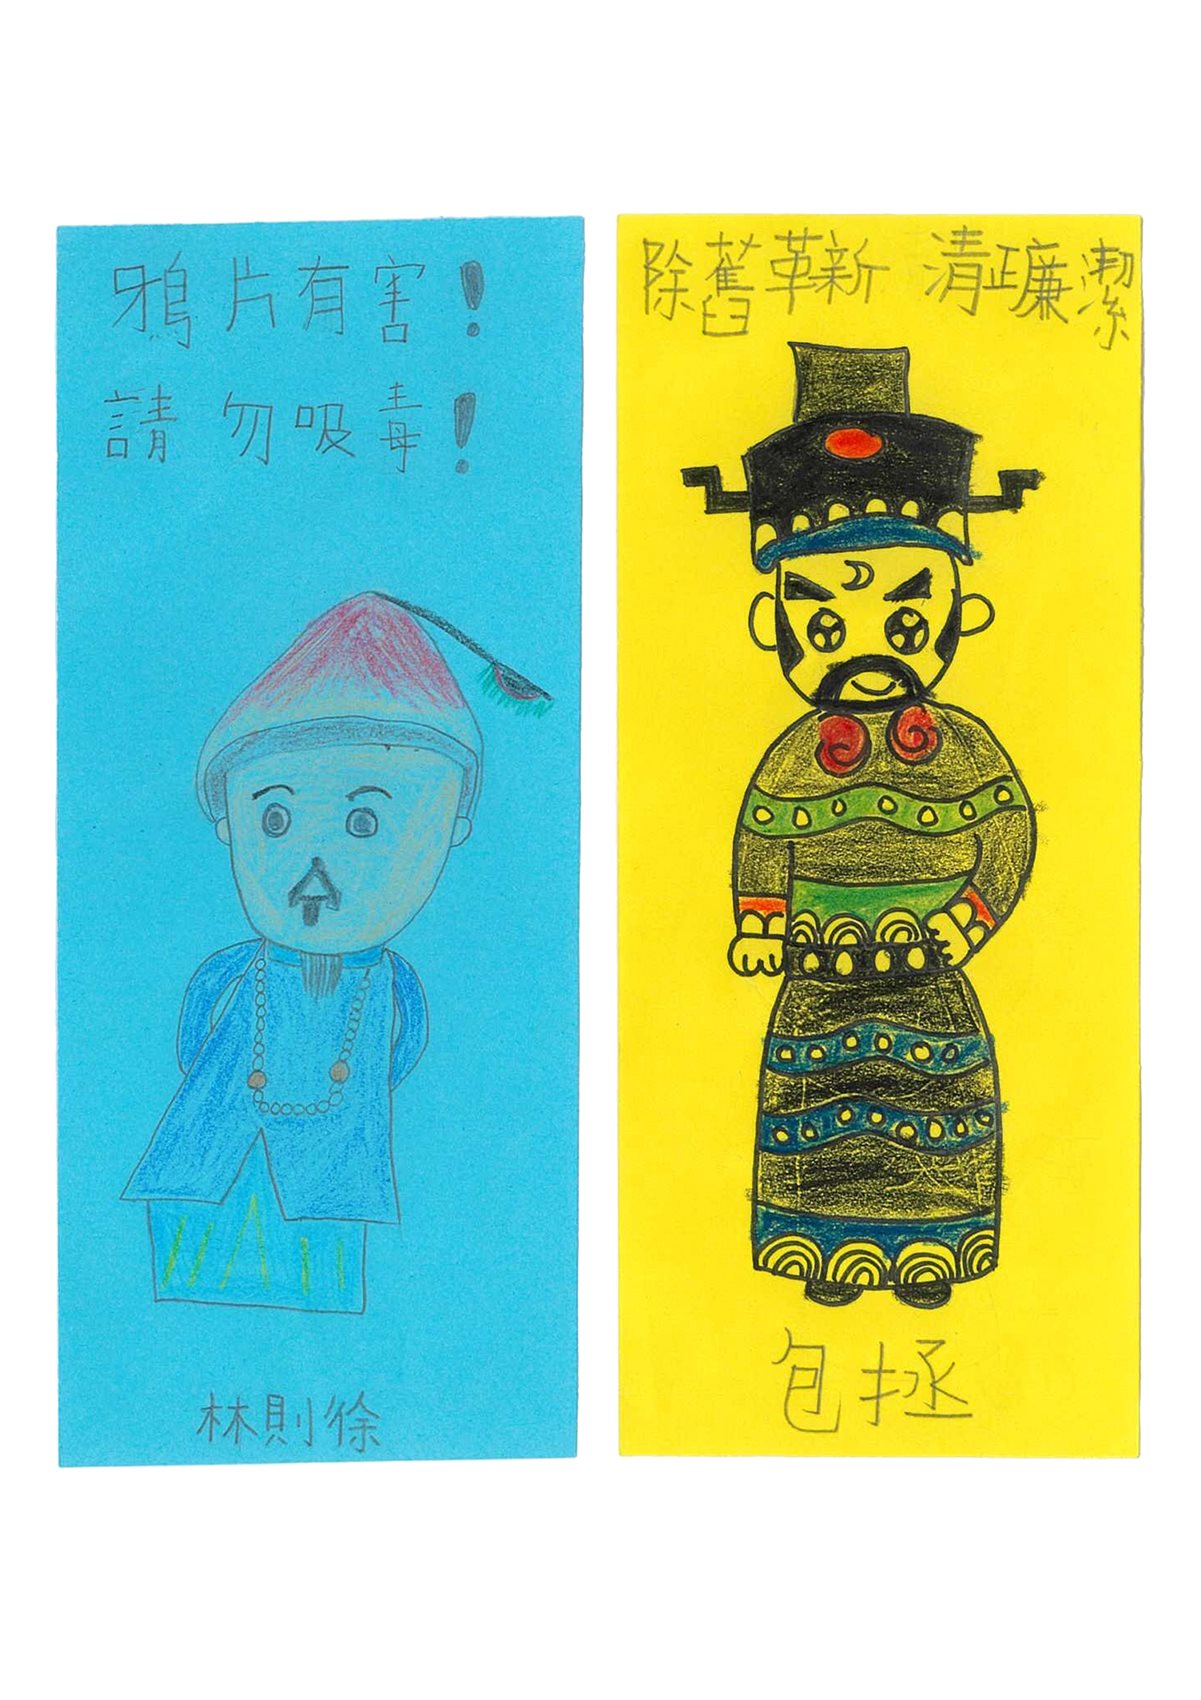 鴉片有害！
請勿吸毒！
林則徐
除舊革新 清正廉潔
包拯